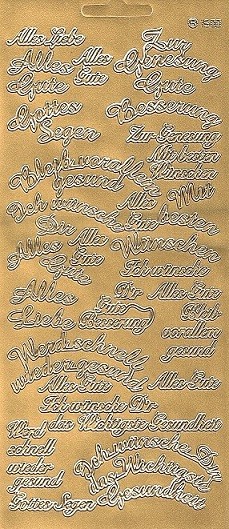 Alles Liebe
Alles
Gute
Alles
Gute
Zur
Genesung
Gute
Besserung
Gottes
Segen
Zur Genesung
Mit besten
Wünschen
Bleib vorallem
gesund
Alles
Gute
Mit
besten
Wünschen
Ich wünsche
Dir
Alles
Gute
Alles
Gute
Ich wünsche
Dir Alles Gute
Alles
Liebe
Gute
Besserung
Bleib
vorallem
gesund
Werd schnell
wieder gesund
Alles Gute
Alles Gute
Ich wünsche Dir
das Wichtigste Gesundheit
Werd
schnell
wieder
gesund
Ich wünsche Dir
das Wichtigste
Gesundheit
Gottes Segen